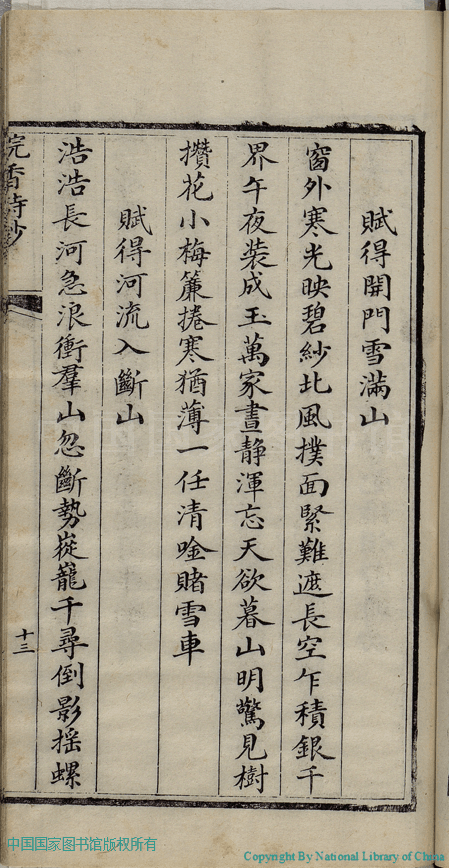 賦得開門雪滿山
窗外寒光映碧紗北風撲面緊難遮長空乍積銀千
界午夜裝成玉萬家晝靜渾忘天欲暮山明驚見樹
攢花小梅簾捲寒猶薄一任清唫賭雪車
賦得河流入斷山
浩浩長河急浪衝羣山忽斷勢嵸巃千尋倒影摇螺
香詩鈔
十三
中国国家图书馆版权所有
Copyright By National Library of China